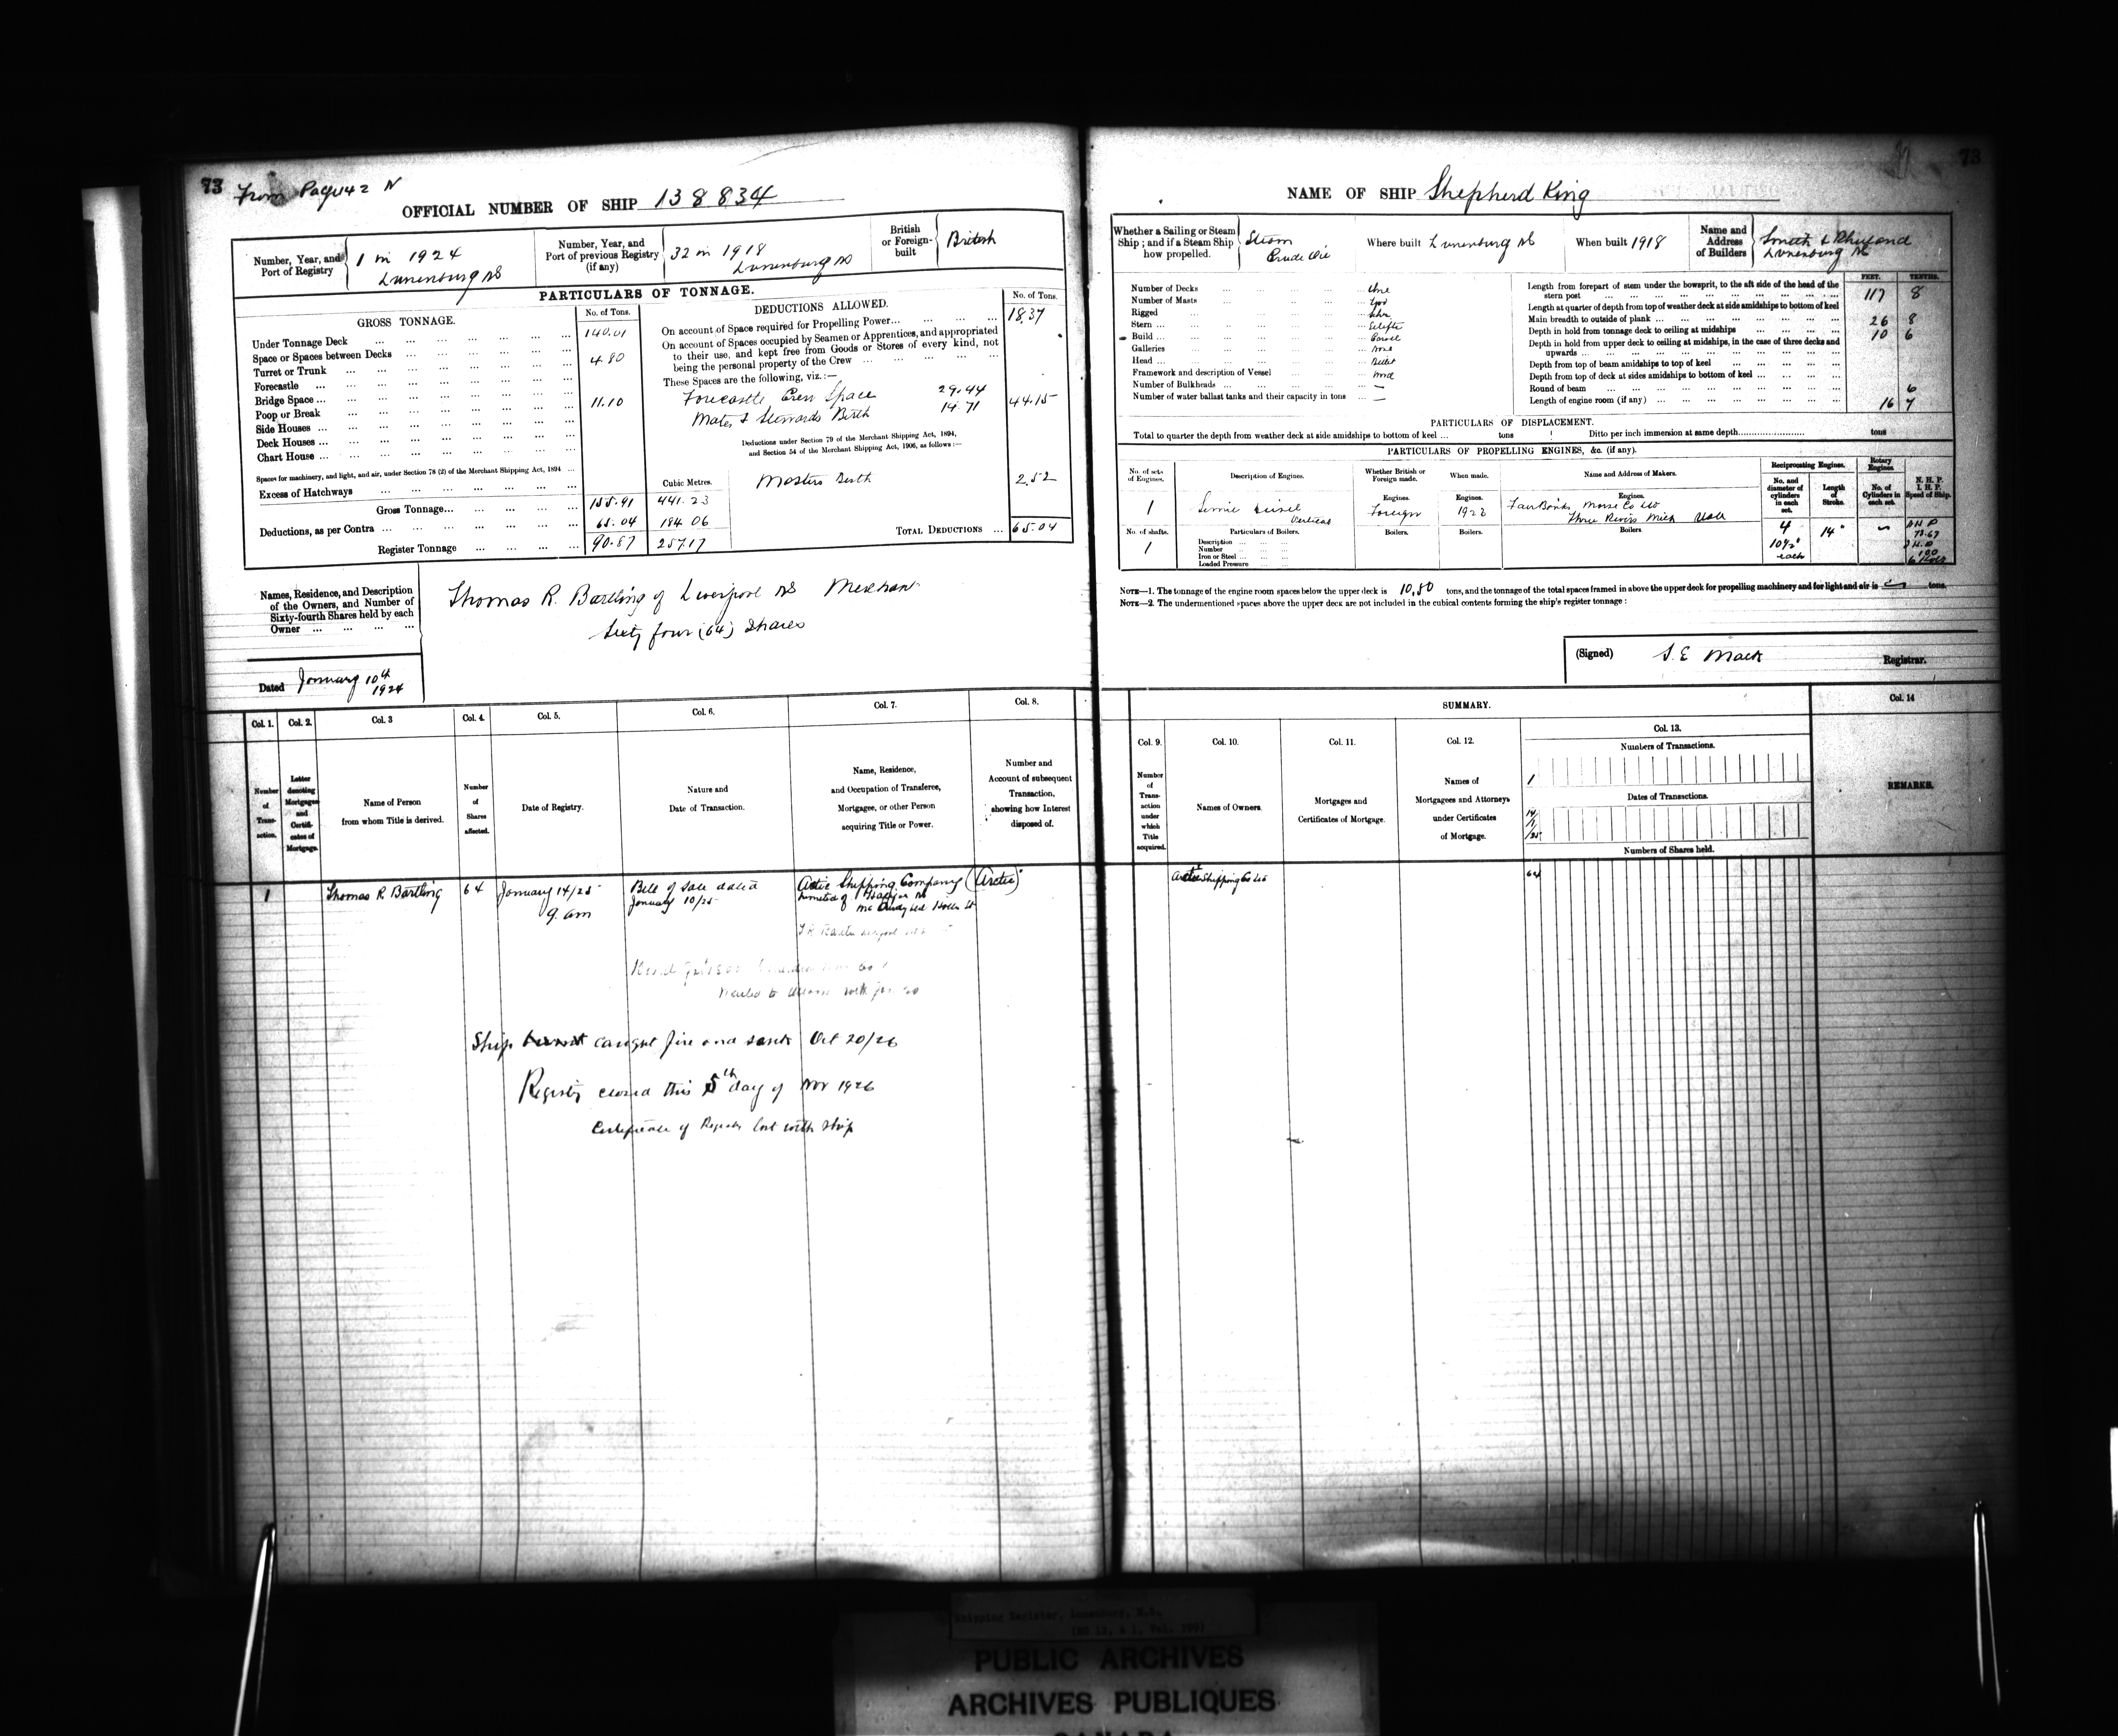 73
From Page 42 N
OFFICIAL NUMBER OF SHIP 138834
Number, Year, and Port of Registry
1 in 1924
Lunenburg NS
Number, Year, and Port of previous Registry (if any)
32 in 1918
Lunenburg NS
British or Foreign-built
British
PARTICULARS OF TONNAGE.
GROSS TONNAGE.
No. of Tons.
Under Tonnage Deck ... 140.01
Space or Spaces between Decks ...
Turret or Trunk ... 4.80
Forecastle ...
Bridge Space ...
Poop or Break ... 11.10
Side Houses ...
Deck Houses ...
Chart House ...
Spaces for machinery, and light, and air, under Section 78 (2) of the Merchant Shipping Act, 1894 ...
Excess of Hatchways ...
Cubic Metres.
Gross Tonnage ... 155.91 441.23
Deductions, as per Contra ... 65.04 184.06
Register Tonnage ... 90.87 257.17
DEDUCTIONS ALLOWED.
No. of Tons.
On account of Space required for Propelling Power ... 18.37
On account of Spaces occupied by Seamen or Apprentices, and appropriated
to their use, and kept free from Goods or Stores of every kind, not
being the personal property of the Crew ...
These Spaces are the following, viz.:—
Forecastle Crew Space 29.44
Mates & Stewards Berth 14.71 44.15
Deductions under Section 79 of the Merchant Shipping Act, 1894,
and Section 54 of the Merchant Shipping Act, 1906, as follows:—
Masters Berth 2.52
TOTAL DEDUCTIONS ... 65.04
Names, Residence, and Description
of the Owners, and Number of
Sixty-fourth Shares held by each
Owner ...
Thomas R. Bartling of Liverpool NS Merchant
Sixty four (64) Shares
Dated January 10th 1924
Col. 1.
Number of Transaction.
Col. 2.
Letter denoting Mortgages and Certificates of Mortgage.
Col. 3
Name of Person
from whom Title is derived.
Col. 4.
Number of Shares affected.
Col. 5.
Date of Registry.
Col. 6.
Nature and
Date of Transaction.
Col. 7.
Name, Residence,
and Occupation of Transferee,
Mortgagee, or other Person
acquiring Title or Power.
Col. 8.
Number and
Account of subsequent
Transaction,
showing how Interest
disposed of.
1 Thomas R Bartling 64 January 14/25 9. am
Bill of Sale dated
January 10/25
Shipping Company (Arctic)
Limited of Halifax NS
Ship caught fire and sank Oct 20/26
Registry closed this 5th day of Nov 1926
Certificate of Registry lost with ship
73
NAME OF SHIP Shepherd King
Whether a Sailing or Steam Ship; and if a Steam Ship how propelled.
Steam
Crude Oil
Where built Lunenburg NS
When built 1918
Name and Address of Builders
Smith & Rhuland
Lunenburg NS
Number of Decks ... One
Number of Masts ... Two
Rigged ... Schr
Stern ... Elliptic
Build ... Carvel
Galleries ... None
Head ... Billet
Framework and description of Vessel ... Wood
Number of Bulkheads ... —
Number of water ballast tanks and their capacity in tons ... —
FEET. TENTHS.
Length from forepart of stem under the bowsprit, to the aft side of the head of the
stern post ... 117 8
Length at quarter of depth from top of weather deck at side amidships to bottom of keel
Main breadth to outside of plank ... 26 8
Depth in hold from tonnage deck to ceiling at midships ... 10 6
Depth in hold from upper deck to ceiling at midships, in the case of three decks and
upwards ...
Depth from top of beam amidships to top of keel ...
Depth from top of deck at sides amidships to bottom of keel ...
Round of beam ... 6
Length of engine room (if any) ... 16 7
PARTICULARS OF DISPLACEMENT.
Total to quarter the depth from weather deck at side amidships to bottom of keel ... tons Ditto per inch immersion at same depth ... tons
PARTICULARS OF PROPELLING ENGINES, &c. (if any).
No. of sets of Engines.
Description of Engines.
Whether British or Foreign made.
When made.
Name and Address of Makers.
Reciprocating Engines.
No. and diameter of cylinders in each set.
Length of Stroke.
Rotary Engines.
No. of Cylinders in each set.
N. H. P.
I. H. P.
Speed of Ship.
1
Semi Diesel
Vertical
Engines.
Foreign
Engines.
Engines.
FairBanks Morse Co
Three Rivers Mich USA
4
10½"
each
14"
100
No. of shafts.
1
Particulars of Boilers.
Description ...
Number ...
Iron or Steel ...
Loaded Pressure ...
Boilers.
Boilers.
Boilers.
NOTE—1. The tonnage of the engine room spaces below the upper deck is 10.80 tons, and the tonnage of the total spaces framed in above the upper deck for propelling machinery and for light and air is — tons.
NOTE—2. The undermentioned spaces above the upper deck are not included in the cubical contents forming the ship's register tonnage:
(Signed) S. E Mack Registrar.
SUMMARY.
Col. 9.
Number of Transaction under which Title acquired.
Col. 10.
Names of Owners.
Col. 11.
Mortgages and
Certificates of Mortgage.
Col. 12.
Names of
Mortgagees and Attorneys
under Certificates
of Mortgage.
Col. 13.
Numbers of Transactions.
1
Dates of Transactions.
14/1/25
Numbers of Shares held.
Col. 14
REMARKS.
Arctic Shipping Co Ltd
64
Shipping Register, Lunenburg, N.S.
PUBLIC ARCHIVES
ARCHIVES PUBLIQUES
CANADA